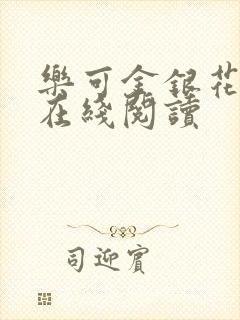 樂可金銀花
在綫閱讀
司迎賓